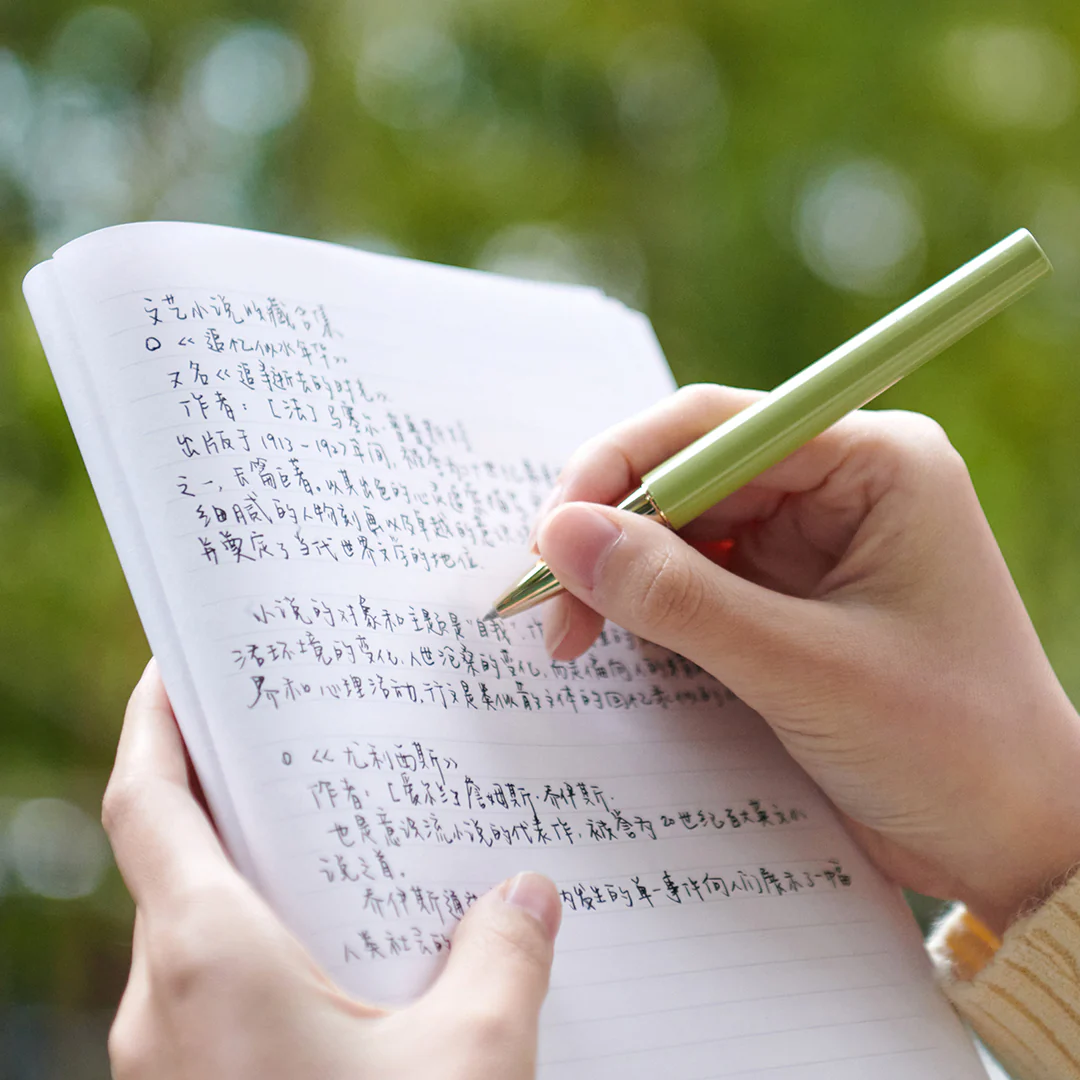 文艺小说收藏合集
○ 《追忆似水年华》
又名《追寻逝去的时光》
作者：[法] 马塞尔·普鲁斯特
出版于1913-1927年间, 被誉为
之一, 长篇巨著。以其出色的心灵追索描
细腻的人物刻画以及卓越的意识
并奠定了当代世界文学的地位
小说的对象和主题是“自我”,
活环境的变化, 人世沧桑的变化,
界和心理活动, 行文是类似散文体的回忆录
○ 《尤利西斯》
作者：[爱尔兰] 詹姆斯·乔伊斯.
也是意识流小说的代表作, 被誉为20世纪百大英文小
说之首.
乔伊斯通 内发生的单一事件向人们展示了一幅
人类社会的